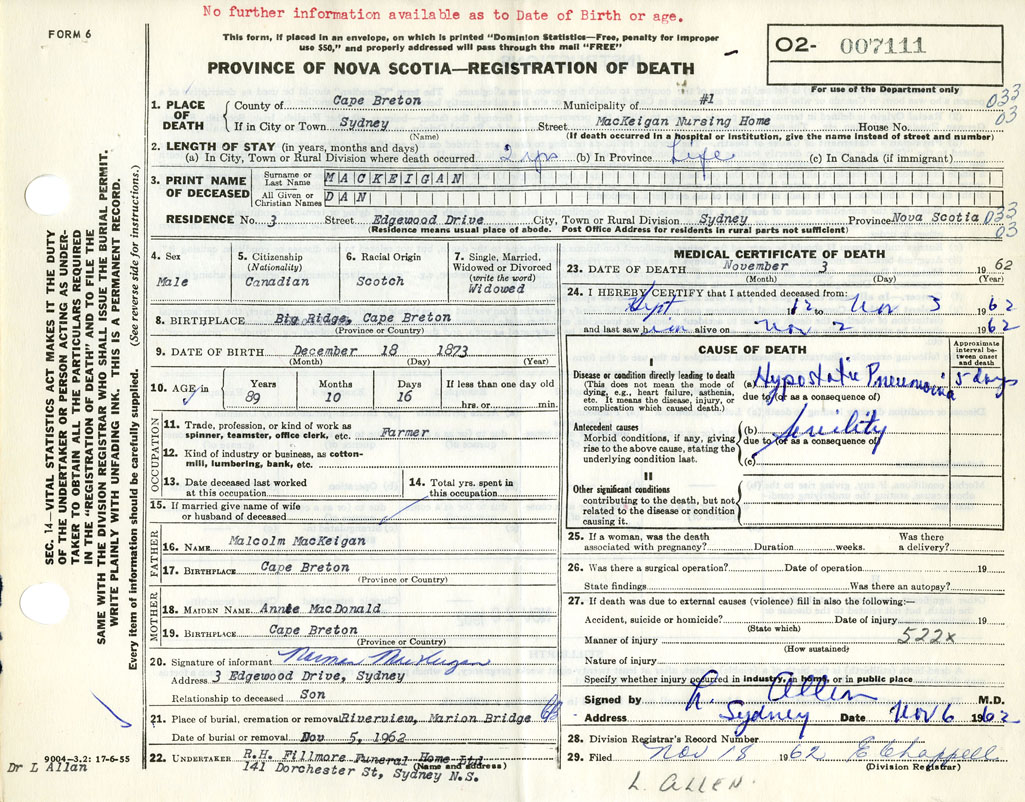 No further information available as to Date of Birth or age.
FORM 6
This form, if placed in an envelope, on which is printed "Dominion Statistics—Free, penalty for improper
use $50," and properly addressed will pass through the mail "FREE"
O2- 007111
PROVINCE OF NOVA SCOTIA—REGISTRATION OF DEATH
For use of the Department only
1. PLACE OF DEATH
County of Cape Breton Municipality of #1 033
If in City or Town Sydney Street MacKeigan Nursing Home House No. 03
(Name) (If death occurred in a hospital or institution, give the name instead of street and number)
2. LENGTH OF STAY (in years, months and days)
(a) In City, Town or Rural Division where death occurred 2 yrs (b) In Province Life (c) In Canada (if immigrant)
3. PRINT NAME OF DECEASED
Surname or Last Name MACKEIGAN
All Given or Christian Names DAN
RESIDENCE No. 3 Street Edgewood Drive City, Town or Rural Division Sydney Province Nova Scotia 033
(Residence means usual place of abode. Post Office Address for residents in rural parts not sufficient) 03
4. Sex
Male
5. Citizenship
(Nationality)
Canadian
6. Racial Origin
Scotch
7. Single, Married,
Widowed or Divorced
(write the word)
Widowed
8. BIRTHPLACE Big Ridge, Cape Breton
(Province or Country)
9. DATE OF BIRTH December 18 1873
(Month) (Day) (Year)
10. AGE in
Years Months Days If less than one day old
89 10 16 hrs. or min.
OCCUPATION
11. Trade, profession, or kind of work as
spinner, teamster, office clerk, etc. Farmer
12. Kind of industry or business, as cotton-
mill, lumbering, bank, etc.
13. Date deceased last worked
at this occupation
14. Total yrs. spent in
this occupation
15. If married give name of wife
or husband of deceased
FATHER
16. NAME Malcolm MacKeigan
17. BIRTHPLACE Cape Breton
(Province or Country)
MOTHER
18. MAIDEN NAME Annie MacDonald
19. BIRTHPLACE Cape Breton
(Province or Country)
20. Signature of informant Norman MacKeigan
Address 3 Edgewood Drive, Sydney
Relationship to deceased Son
21. Place of burial, cremation or removal Riverview, Marion Bridge
Date of burial or removal Nov 5, 1962
22. UNDERTAKER R.H. Fillmore Funeral Home Ltd
(Name and address)
141 Dorchester St, Sydney N.S.
MEDICAL CERTIFICATE OF DEATH
23. DATE OF DEATH November 3 1962
(Month) (Day) (Year)
24. I HEREBY CERTIFY that I attended deceased from:
Sept 12 to Nov 3 1962
and last saw him alive on Nov 2 1962
CAUSE OF DEATH
Approximate
interval be-
tween onset
and death
I
Disease or condition directly leading to death
(This does not mean the mode of
dying, e.g., heart failure, asthenia,
etc. It means the disease, injury, or
complication which caused death.)
(a) Hypostatic Pneumonia 5 days
due to (or as a consequence of)
Antecedent causes
Morbid conditions, if any, giving
rise to the above cause, stating the
underlying condition last.
(b) Senility
due to (or as a consequence of)
(c)
II
Other significant conditions
contributing to the death, but not
related to the disease or condition
causing it.
25. If a woman, was the death
associated with pregnancy? Duration weeks. Was there
a delivery?
26. Was there a surgical operation? Date of operation 19
State findings Was there an autopsy?
27. If death was due to external causes (violence) fill in also the following:—
Accident, suicide or homicide? Date of injury 19
(State which)
Manner of injury 522x
(How sustained)
Nature of injury
Specify whether injury occurred in industry, in home, or in public place
Signed by L. Allen M.D.
Address Sydney Date Nov 6 1962
28. Division Registrar's Record Number
29. Filed Nov 18 1962 E Chappell
(Division Registrar)
L. ALLEN.
SEC. 14—VITAL STATISTICS ACT MAKES IT THE DUTY
OF THE UNDERTAKER OR PERSON ACTING AS UNDER-
TAKER TO OBTAIN ALL THE PARTICULARS REQUIRED
IN THE "REGISTRATION OF DEATH" AND TO FILE THE
SAME WITH THE DIVISION REGISTRAR WHO SHALL ISSUE THE BURIAL PERMIT.
WRITE PLAINLY WITH UNFADING INK. THIS IS A PERMANENT RECORD.
Every item of information should be carefully supplied. (See reverse side for instructions.)
9004—3.2: 17-6-55
Dr L Allan